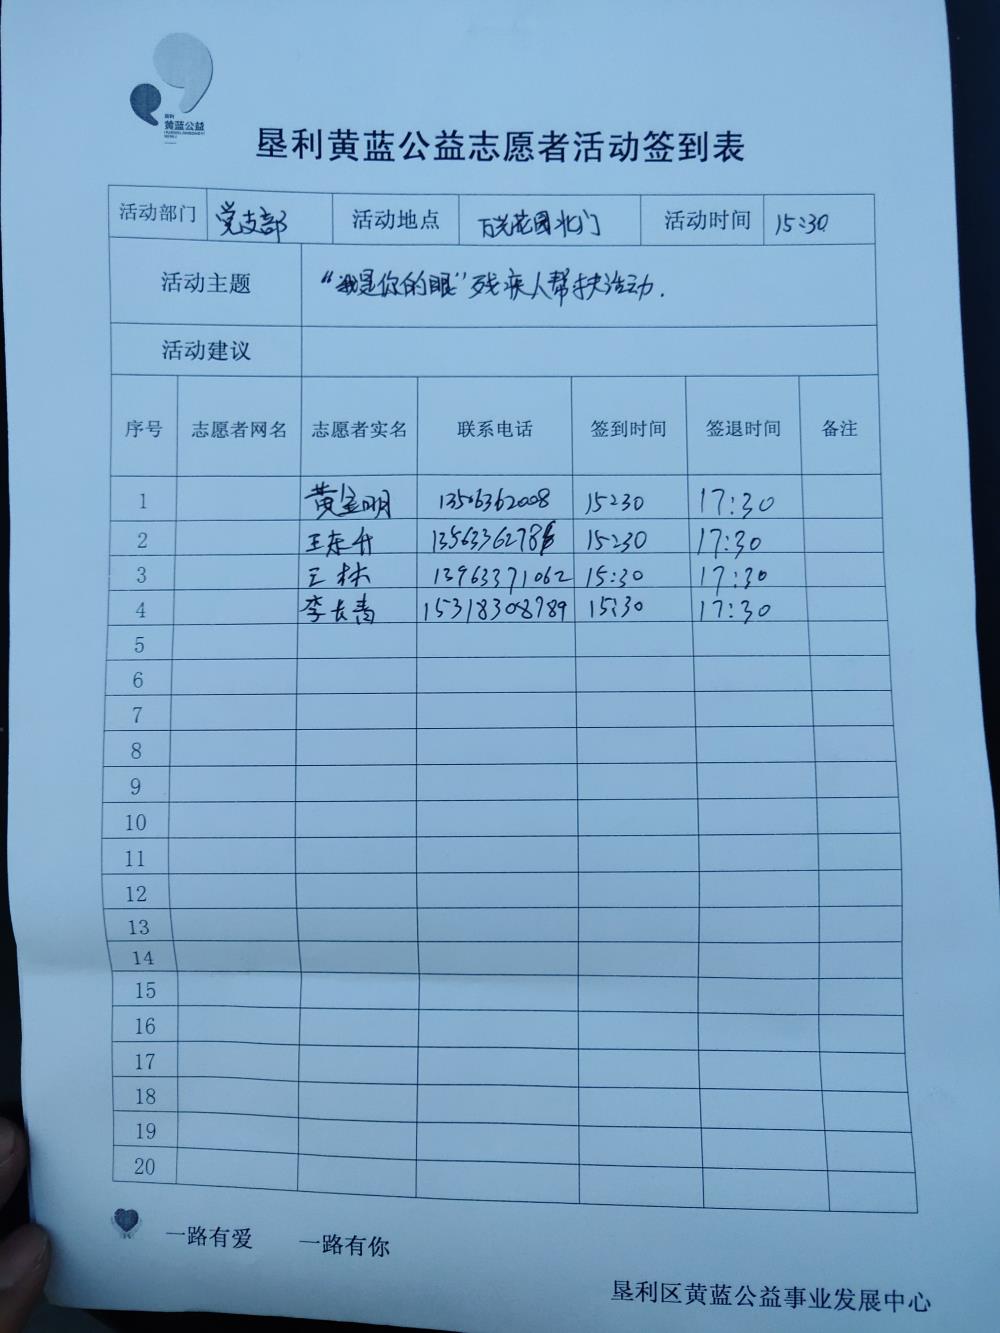 垦利
黄蓝公益
垦利黄蓝公益志愿者活动签到表
活动部门 党支部 活动地点 万光花园北门 活动时间 15:30
活动主题 “我是你的眼”残疾人帮扶活动.
活动建议
序号 志愿者网名 志愿者实名 联系电话 签到时间 签退时间 备注
1 黄金明 13506362008 15:30 17:30
2 王东升 1356336278 15:30 17:30
3 王林 13963371062 15:30 17:30
4 李长青 15318308789 15:30 17:30
5
6
7
8
9
10
11
12
13
14
15
16
17
18
19
20
一路有爱 一路有你
垦利区黄蓝公益事业发展中心